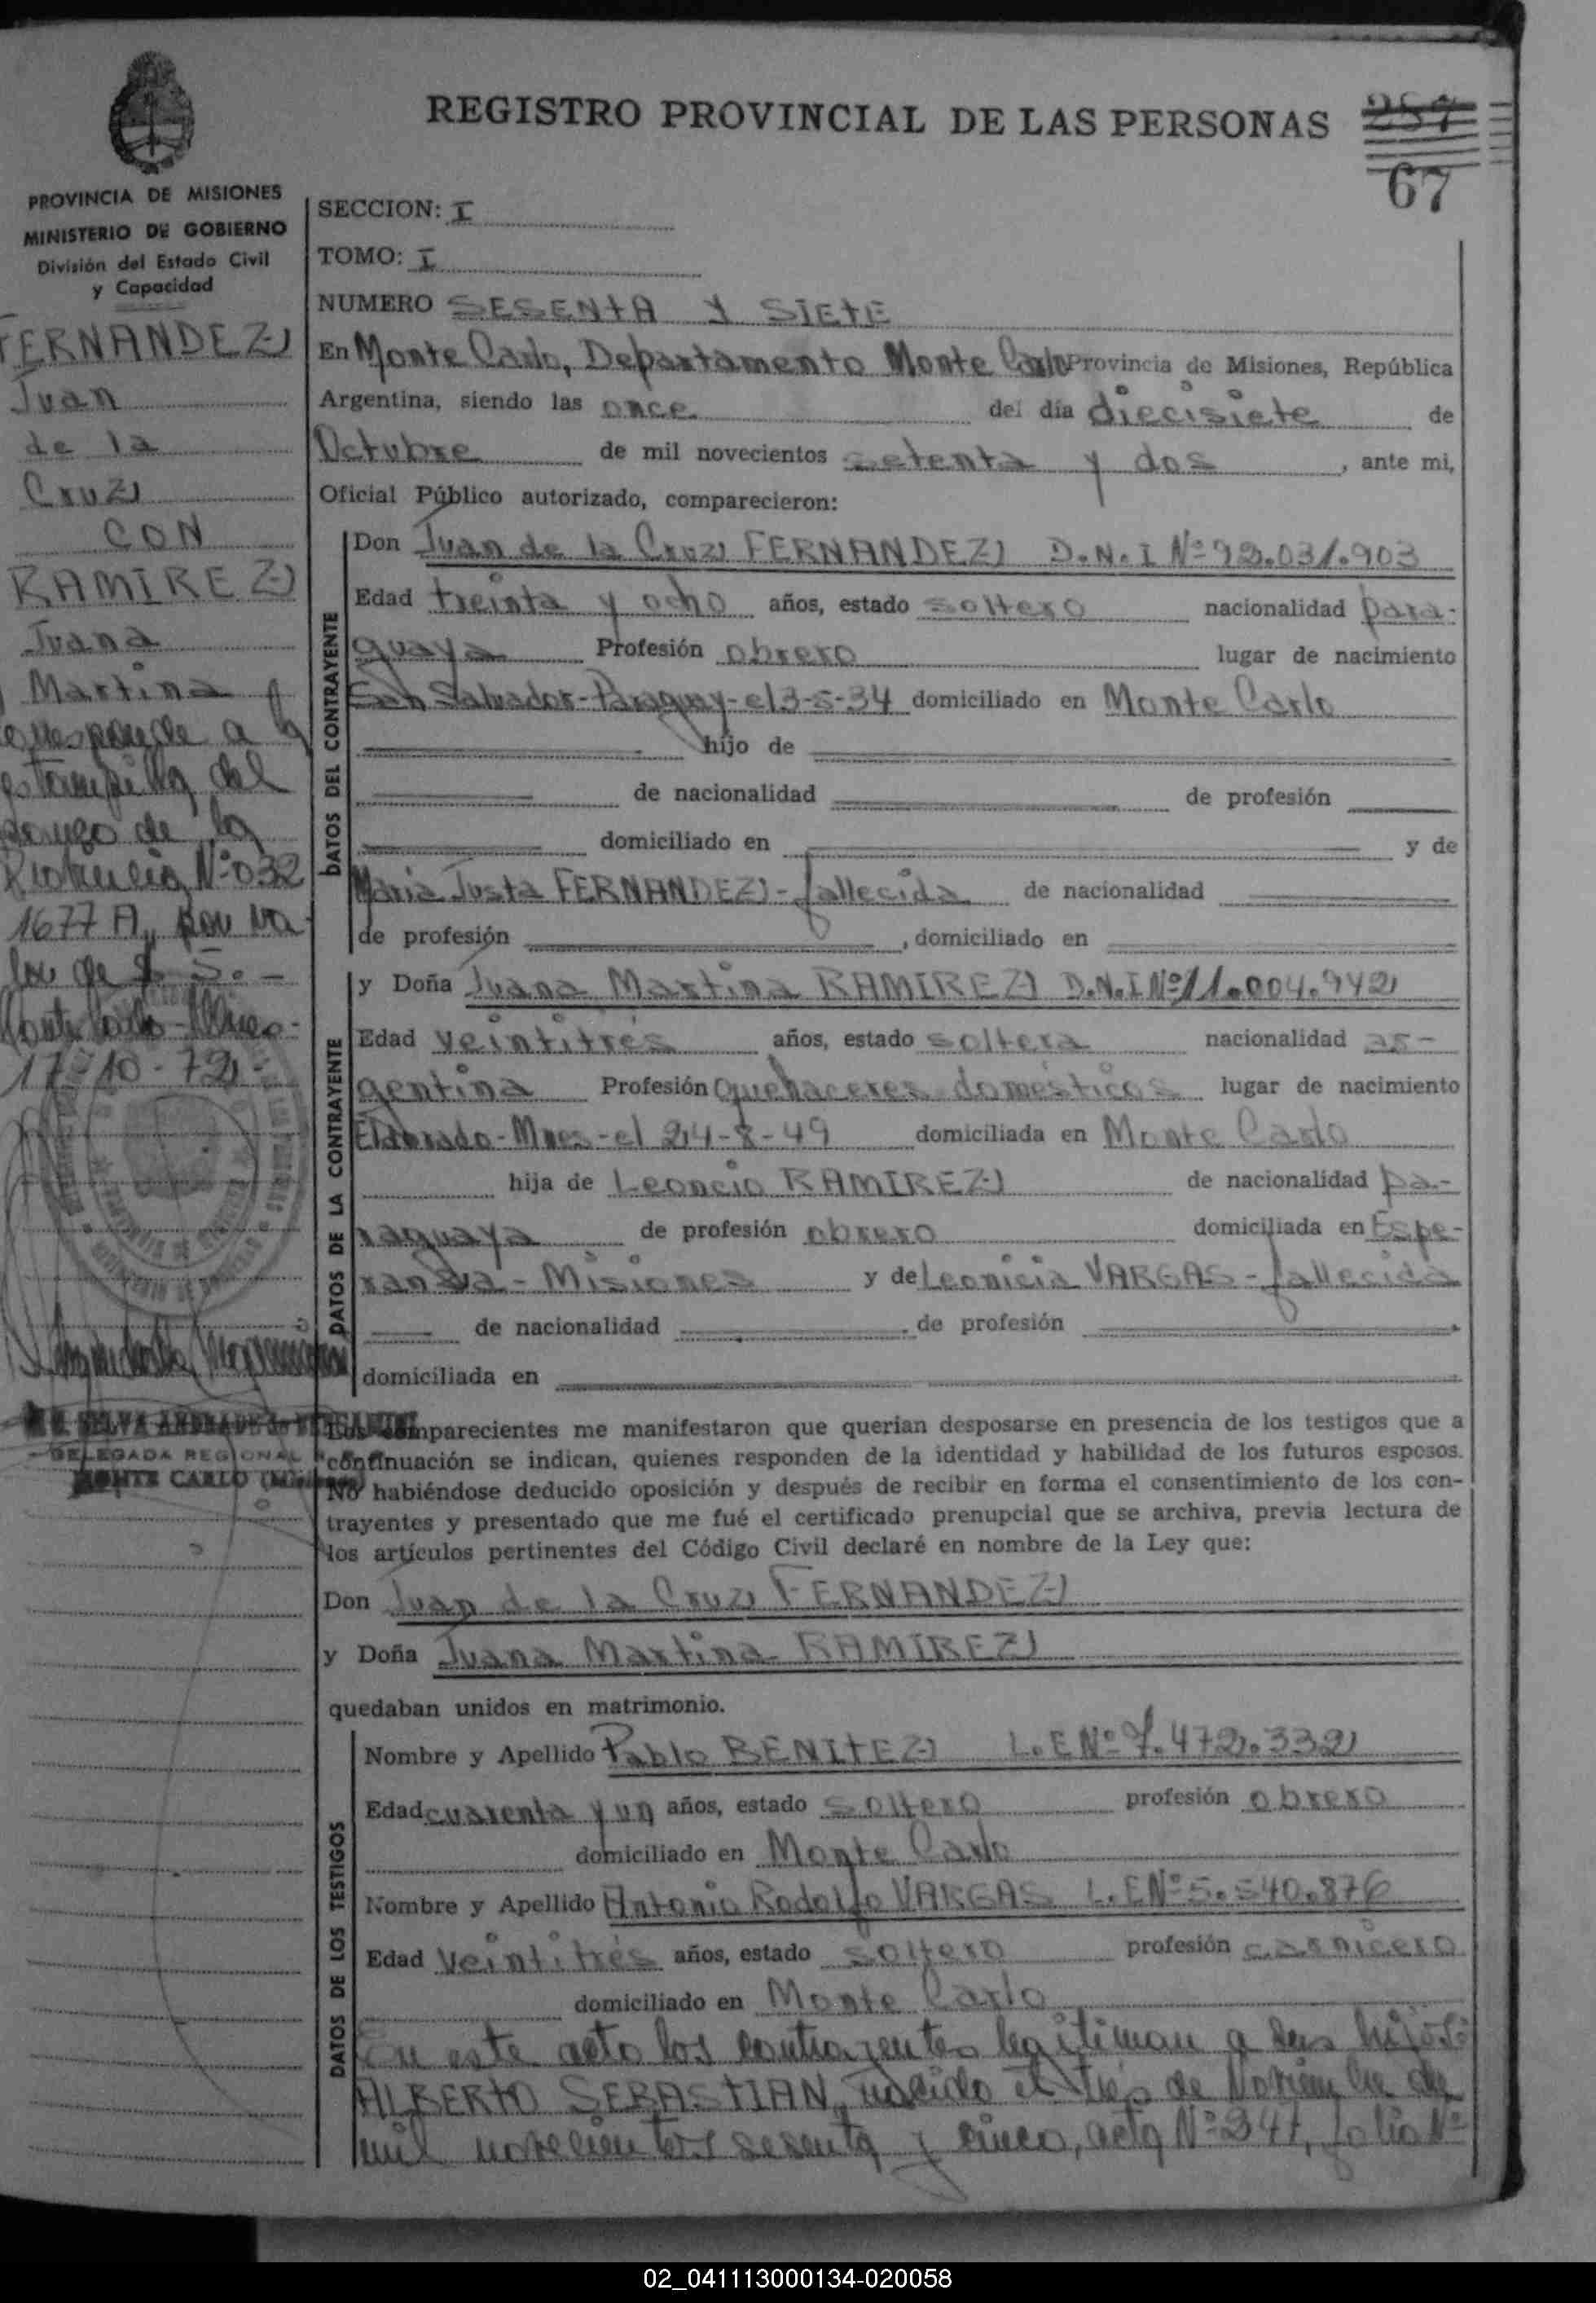 REGISTRO PROVINCIAL DE LAS PERSONAS
287
67
PROVINCIA DE MISIONES
MINISTERIO DE GOBIERNO
División del Estado Civil
y Capacidad
FERNANDEZ
Juan
de la
Cruz
CON
RAMIREZ
Juana
Martina
corresponde a la
estampilla del
de la
Provincia Nº 032
1677 A, por va-
lor de $ 5.-
Monte Carlo - Mnes -
17-10-72.-
DELEGADA REGIONAL
MONTE CARLO
SECCION: I
TOMO: I
NUMERO SESENTA Y SIETE
En Monte Carlo, Departamento Monte Carlo Provincia de Misiones, República
Argentina, siendo las once del día diecisiete de
Octubre de mil novecientos setenta y dos, ante mi,
Oficial Público autorizado, comparecieron:
DATOS DEL CONTRAYENTE
Don Juan de la Cruz FERNANDEZ D.N.I Nº 92.031.903
Edad treinta y ocho años, estado soltero nacionalidad para-
guaya Profesión obrero lugar de nacimiento
San Salvador-Paraguay-el 3-5-34 domiciliado en Monte Carlo
hijo de
de nacionalidad de profesión
domiciliado en y de
María Justa FERNANDEZ - fallecida de nacionalidad
de profesión , domiciliado en
DATOS DE LA CONTRAYENTE
y Doña Juana Martina RAMIREZ D.N.I Nº 11.004.942
Edad veintitrés años, estado soltera nacionalidad ar-
gentina Profesión Quehaceres domésticos lugar de nacimiento
Eldorado-Mnes-el 24-8-49 domiciliada en Monte Carlo
hija de Leoncio RAMIREZ de nacionalidad pa-
raguaya de profesión obrero domiciliada en Espe-
ranza - Misiones y de Leonicia VARGAS - fallecida
de nacionalidad de profesión
domiciliada en
Los comparecientes me manifestaron que querian desposarse en presencia de los testigos que a
continuación se indican, quienes responden de la identidad y habilidad de los futuros esposos.
No habiéndose deducido oposición y después de recibir en forma el consentimiento de los con-
trayentes y presentado que me fué el certificado prenupcial que se archiva, previa lectura de
los artículos pertinentes del Código Civil declaré en nombre de la Ley que:
Don Juan de la Cruz FERNANDEZ
y Doña Juana Martina RAMIREZ
quedaban unidos en matrimonio.
DATOS DE LOS TESTIGOS
Nombre y Apellido Pablo BENITEZ L.E Nº 7.472.332
Edad cuarenta y un años, estado soltero profesión obrero
domiciliado en Monte Carlo
Nombre y Apellido Antonio Rodolfo VARGAS L.E Nº 5.540.876
Edad veintitrés años, estado soltero profesión carnicero
domiciliado en Monte Carlo
En este acto los contrayentes legitiman a sus hijos:
ALBERTO SEBASTIAN, nacido el tres de Noviembre de
mil novecientos sesenta y cinco, acta Nº 347, folio Nº
02_041113000134-020058